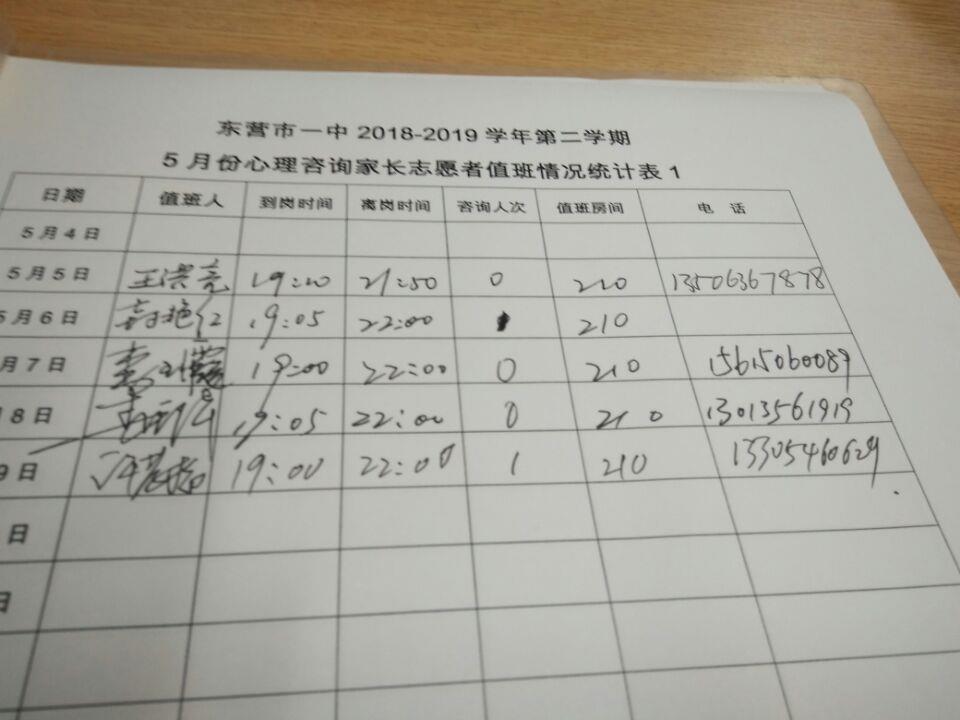 东营市一中 2018-2019 学年第二学期
5 月份心理咨询家长志愿者值班情况统计表 1
日期 值班人 到岗时间 离岗时间 咨询人次 值班房间 电 话
5月4日
5月5日 王洪亮 19:20 21:50 0 210 13506367878
5月6日 19:05 22:00 210
月7日 19:00 22:00 0 210 15615060089
8日 19:05 22:00 0 210 13013561919
9日 19:00 22:00 1 210 13305460629
日
日